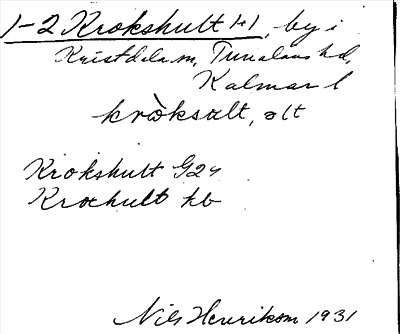 1-2 Krokshult 1+1, by i
Kristdala sn, Tunaläns hd,
Kalmar l
kròksult, -ǝlt
Krokshult G24
Krochult kb
Nils Henrikson 1931